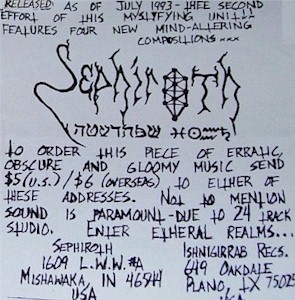 RELEASED: AS OF JULY 1993 - THEE SECOND
EFFORT OF THIS MYSTIFYING UNIT--
FEATURES FOUR NEW MIND-ALTERING
COMPOSITIONS...
SEPHIROTH
TO ORDER THIS PIECE OF ERRATIC,
OBSCURE AND GLOOMY MUSIC SEND
$5(U.S.)/$6 (OVERSEAS), TO EITHER OF
THESE ADDRESSES. NOT TO MENTION
SOUND IS PARAMOUNT-DUE TO 24 TRACK
STUDIO. ENTER ETHERAL REALMS...
SEPHIROTH
1609 L.W.W. #A
MISHAWAKA, IN 46544
USA
ISHNIGIRRAB RECS.
649 OAKDALE
PLANO, TX 75025